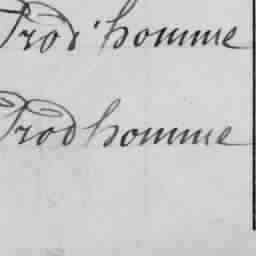 Prod'homme
Prodhomme